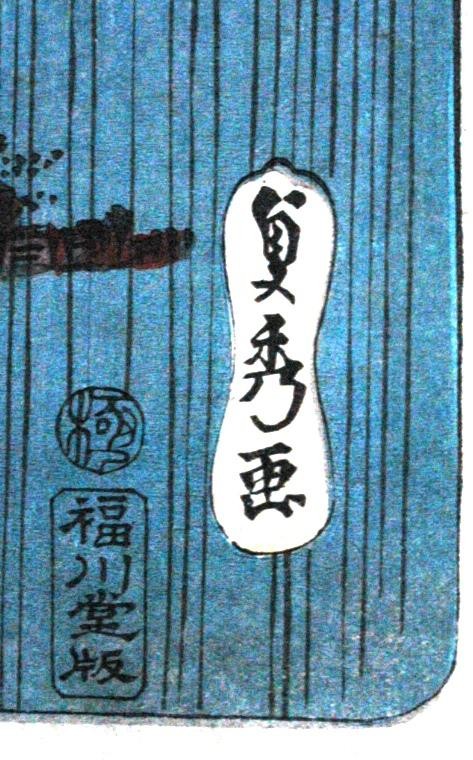 貞秀画
極
福川堂版